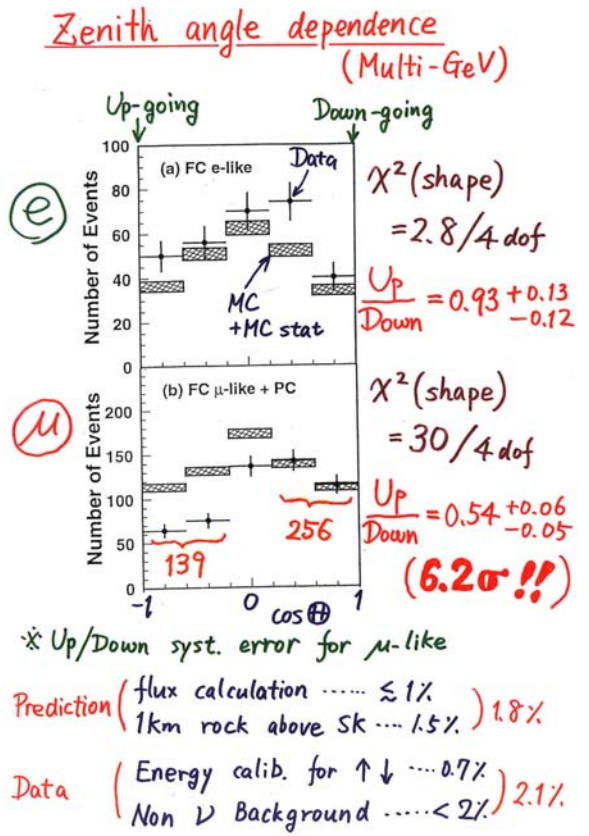 Zenith angle dependence
(Multi-GeV)
Up-going
Down-going
e
(a) FC e-like
Data
MC
+MC stat
Number of Events
100
80
60
40
20
0
χ²(shape)
= 2.8/4 dof
Up/Down = 0.93 +0.13 -0.12
μ
(b) FC μ-like + PC
Number of Events
200
150
100
50
0
139
256
-1 0 1
cos Θ
χ²(shape)
= 30/4 dof
Up/Down = 0.54 +0.06 -0.05
(6.2σ!!)
※ Up/Down syst. error for μ-like
Prediction ( flux calculation ······ ≲ 1%
1km rock above SK ···· 1.5% ) 1.8%
Data ( Energy calib. for ↑ ↓ ···· 0.7%
Non ν Background ····· < 2% ) 2.1%